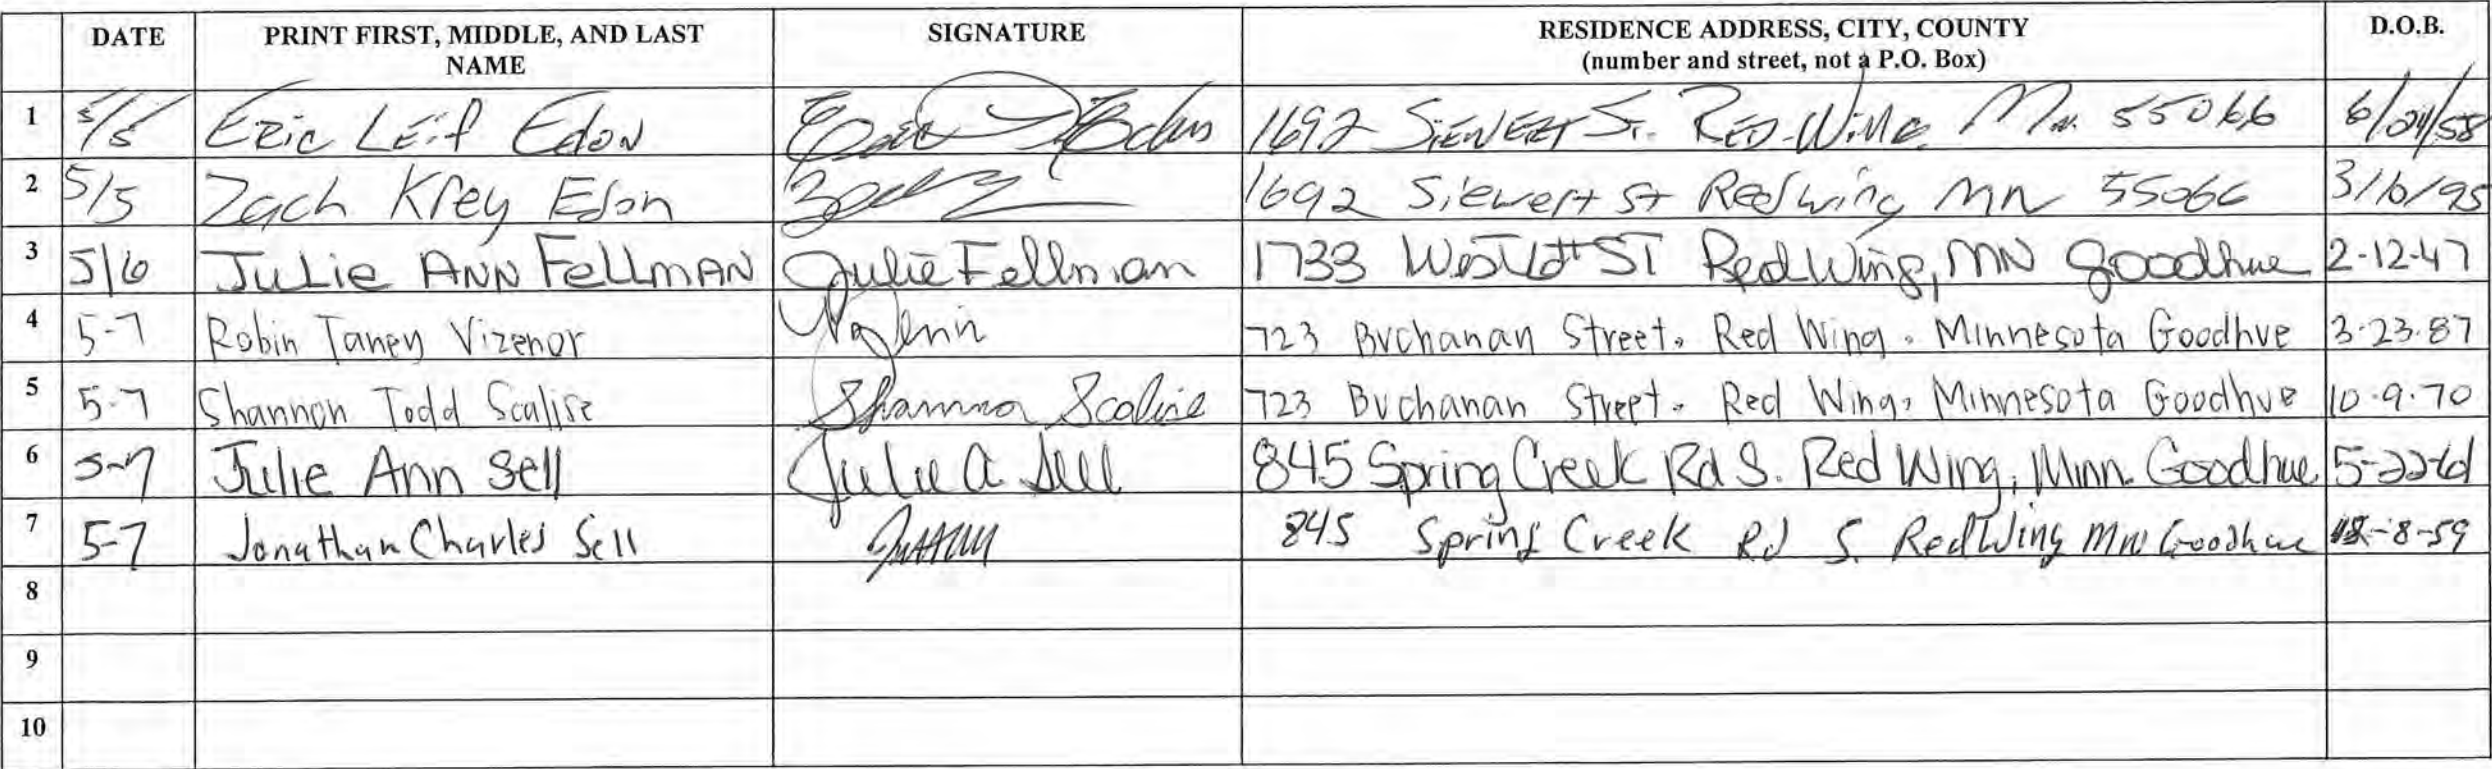 DATE PRINT FIRST, MIDDLE, AND LAST NAME SIGNATURE RESIDENCE ADDRESS, CITY, COUNTY (number and street, not a P.O. Box) D.O.B.
1 5/5 Eric Leif Edon 1692 SIEWERT ST. RED-WING Mn. 55066 6/24/58
2 5/5 Zach Krey Edon 1692 Siewert St Red wing MN 55066 3/6/95
3 5/6 JULie ANN FellMAN Julie Fellman 1733 West ST Red Wing, MN Goodhue 2-12-47
4 5-7 Robin Taney Vizenor 723 Buchanan Street. Red Wing. Minnesota Goodhue 3.23.87
5 5-7 Shannon Todd Scalise Shannon Scalise 723 Buchanan Street. Red Wing, Minnesota Goodhue 10.9.70
6 5-7 Julie Ann Sell Julie A Sell 845 Spring Creek Rd S. Red Wing, Minn. Goodhue 5-22-61
7 5-7 Jonathan Charles Sell 845 Spring Creek Rd S. Red Wing MN Goodhue -8-59
8
9
10